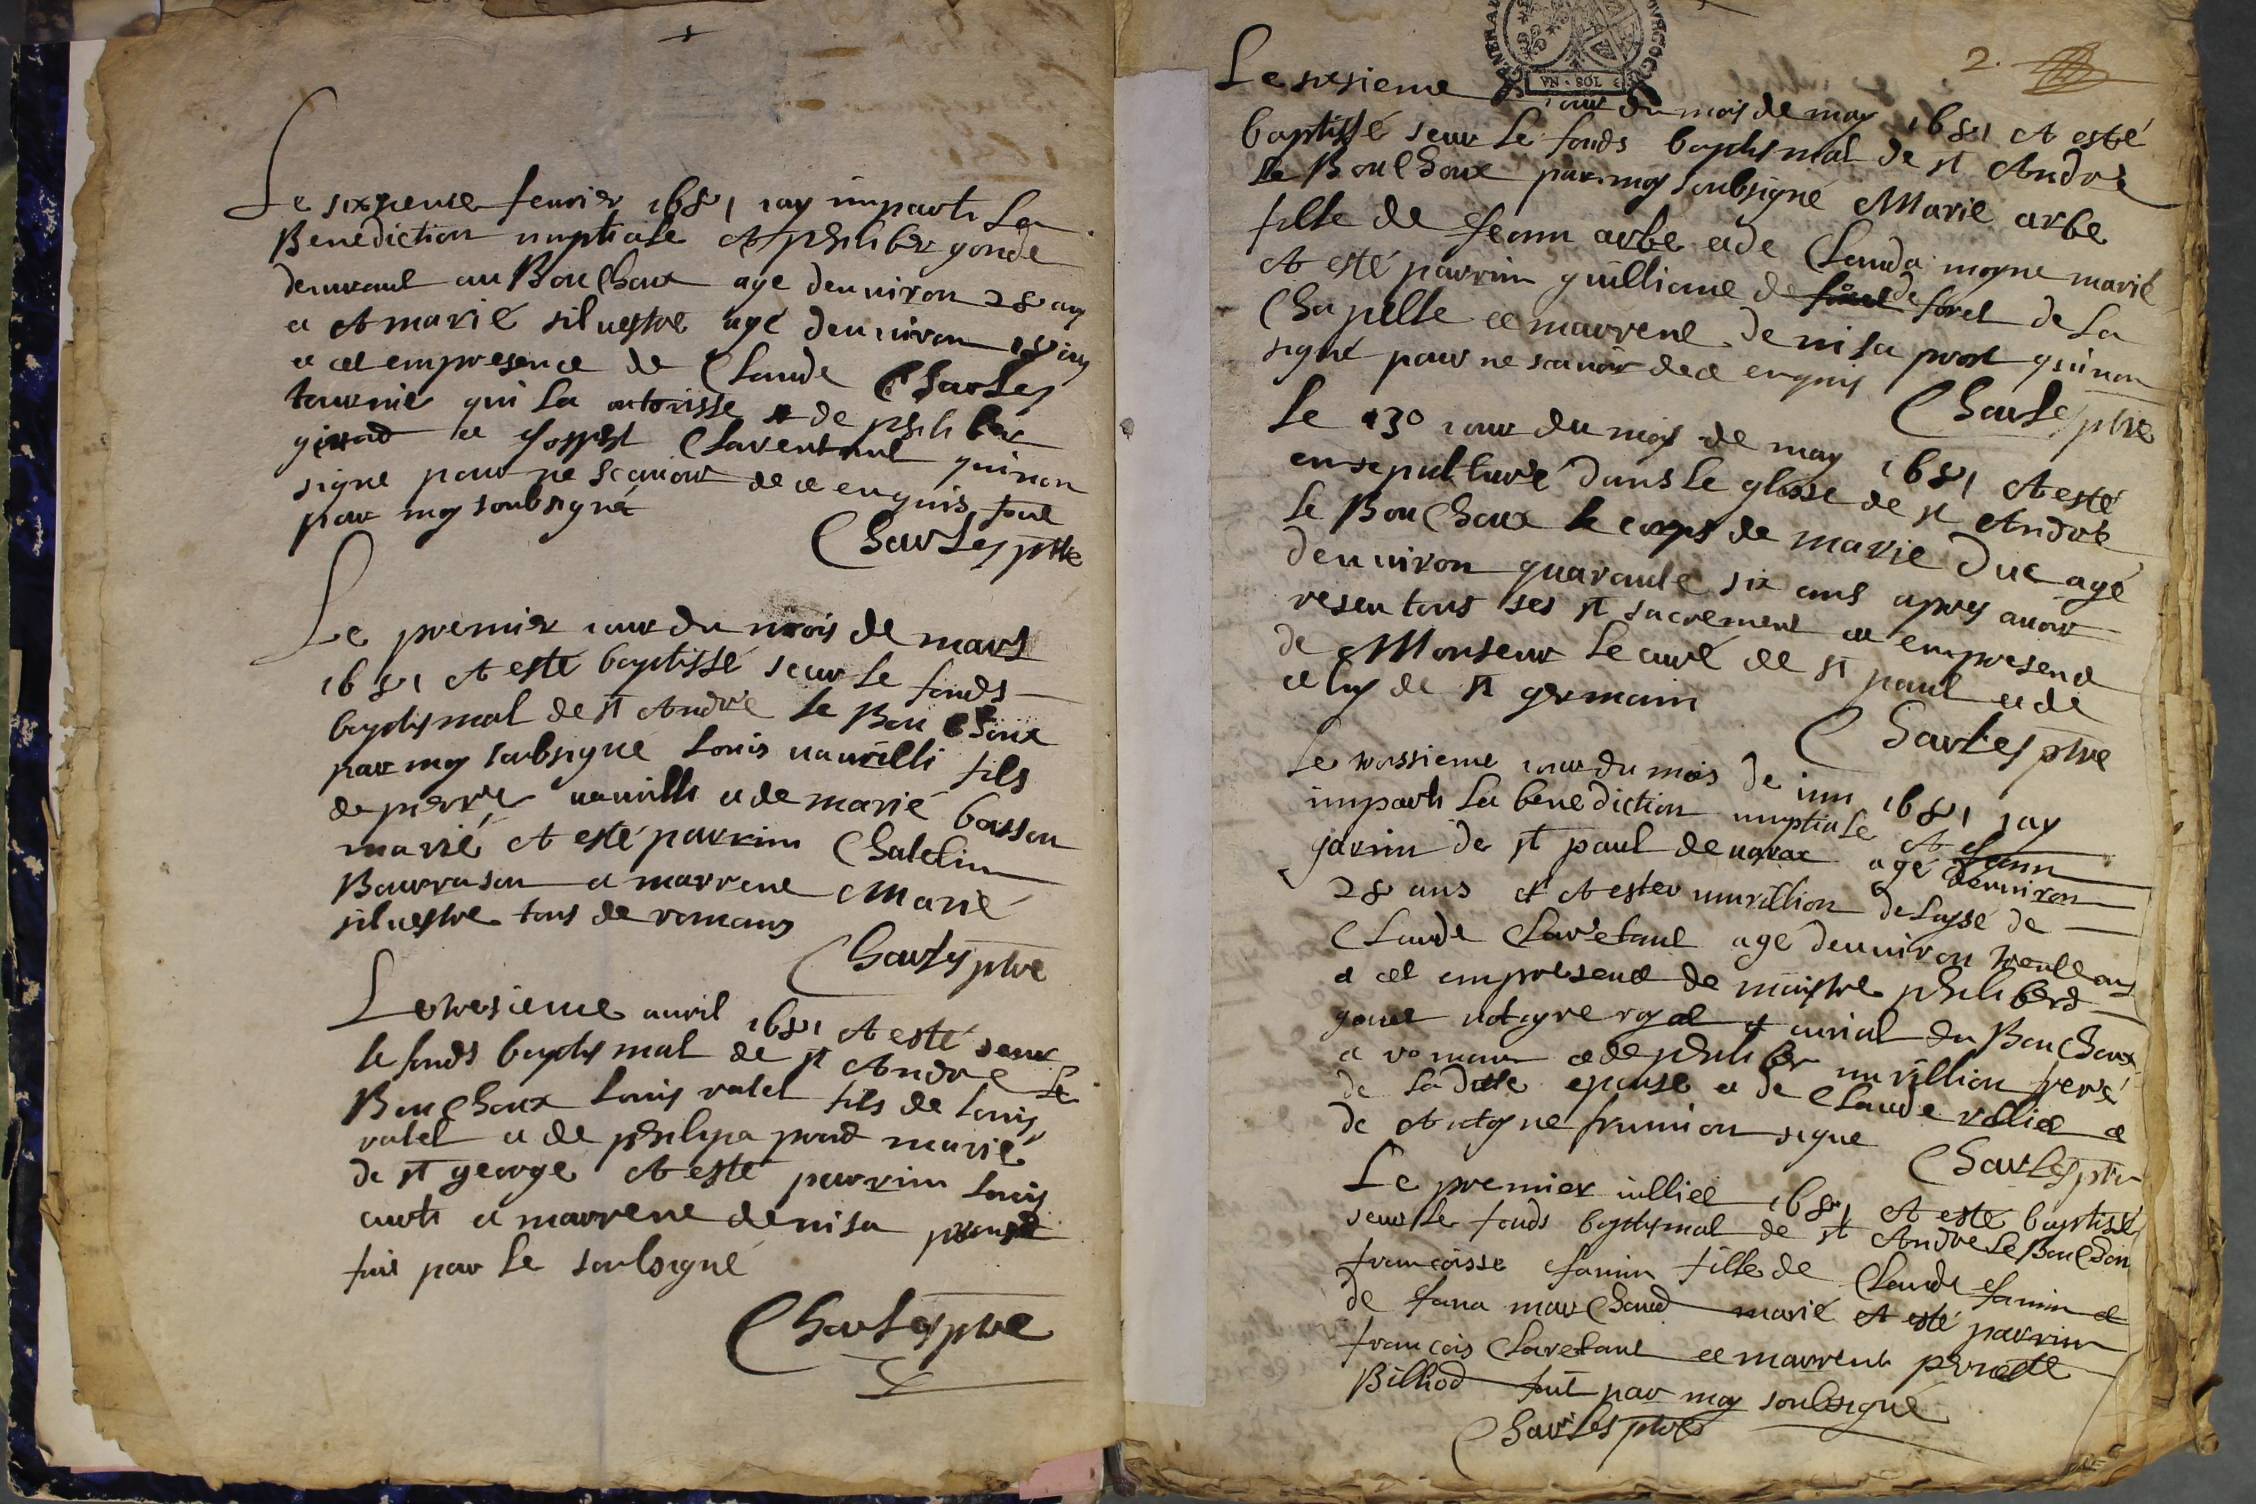 Le sixsieme feuvier 1681 iay imparti La
Benediction nuptiale A philiber gonde
demurant au Bouchoux age denuiron 28 ans
e A marie siluestre agé denuiron 18 ans
e cet empresence de Claude Charles
tournie qui la autorisse et de philiber
e Claretant qui non
signe pour ne scauoir de ce enquis fait
par moy soubsigné
Charles ptre
Le premier iour du mois de mars
1681 A esté baptissé seur le fonds
baptismal de st Andre le Bouchoux
par moy soubsigné Louis uaurilli fils
de pierre uaurilli e de marie basson
marié A esté parrim Chatelin
Bourrason e marrene Marie
siluestre tous de romans
Charles ptre
Le tresieme auril 1681 A esté seur
le fonds baptismal de st Andre Le
Bouchoux Louis ratel fils de Louis
ratel e de philipa prost marié
de st george A esté parrim Louis
curti e marrene denisa
fait par le soubsigné
Charles ptre
2.
GENERA
VN · SOL
Le sesieme iour du mois de may 1681 A esté
baptissé seur Le fonds baptismal de st Andre
le Bouchoux par moy soubsigné Marie arbe
fille de Jeann arbe e de Clauda moyne marié
A esté parrim guilliame de foret de La
Chapelle e marrene denisa prost qui non
signé pour ne scauoir de ce enquis
Charles ptre
Le 30 iour du mois de may 1681 A esté
ensepulturé dans Le glisse de st Andre
le Bouchoux le corps de marie Duc agé
denuiron quarante six ans apres auoir
reseu tous ses st sacrement e empresence
de Monseur Le curé de st paul e de
celuy de st germain
Charles ptre
Le troissieme iour du mois de iuin 1681 iay
imparti La benediction nuptiale A Jeann
Janin de st paul de uarax agé denuiron
28 ans et A ester murillion delayse de
Claude Claretant agé denuiron trente ans
e cet empresence de maistre philiberd
gonet notayre royal et curial du Bouchoux
e romans e de philiber murillion frere
de La ditte epouse e de Claude rollie e
de Antoyne frumion signe
Charles ptre
Le premier iulliet 1681 A esté baptissé
seur Le fonds baptismal de st Andre Le Bouchou
francoisse Janin fille de Claude Janin e
de Jana marchand marié A esté parrim
francois Claretant e marrene pernette
Billiod fait par moy soubsigné
Charles ptre